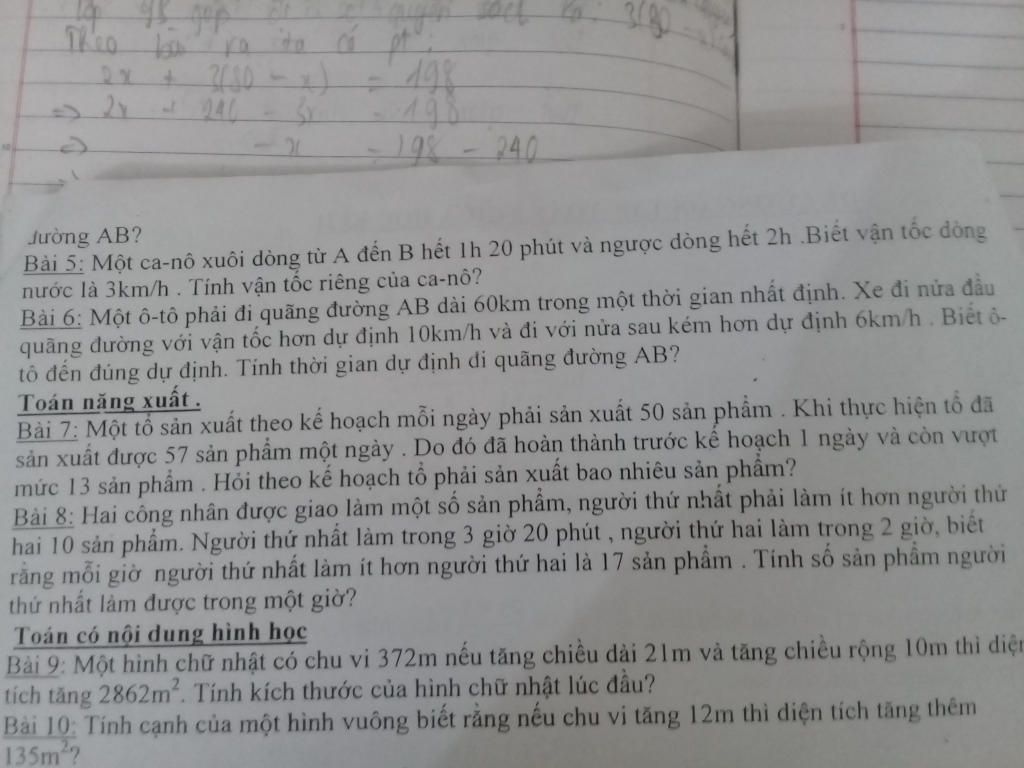 Theo bài ra ta có pt:
2x + 3(80 - x) = 198
=> 2x + 240 - 3x = 198
=> - x = 198 - 240
đường AB?
Bài 5: Một ca-nô xuôi dòng từ A đến B hết 1h 20 phút và ngược dòng hết 2h .Biết vận tốc dòng
nước là 3km/h . Tính vận tốc riêng của ca-nô?
Bài 6: Một ô-tô phải đi quãng đường AB dài 60km trong một thời gian nhất định. Xe đi nửa đầu
quãng đường với vận tốc hơn dự định 10km/h và đi với nửa sau kém hơn dự định 6km/h . Biết ô-
tô đến đúng dự định. Tính thời gian dự định đi quãng đường AB?
Toán năng xuất .
Bài 7: Một tổ sản xuất theo kế hoạch mỗi ngày phải sản xuất 50 sản phẩm . Khi thực hiện tổ đã
sản xuất được 57 sản phẩm một ngày . Do đó đã hoàn thành trước kế hoạch 1 ngày và còn vượt
mức 13 sản phẩm . Hỏi theo kế hoạch tổ phải sản xuất bao nhiêu sản phẩm?
Bài 8: Hai công nhân được giao làm một số sản phẩm, người thứ nhất phải làm ít hơn người thứ
hai 10 sản phẩm. Người thứ nhất làm trong 3 giờ 20 phút , người thứ hai làm trong 2 giờ, biết
rằng mỗi giờ người thứ nhất làm ít hơn người thứ hai là 17 sản phẩm . Tính số sản phẩm người
thứ nhất làm được trong một giờ?
Toán có nội dung hình học
Bài 9: Một hình chữ nhật có chu vi 372m nếu tăng chiều dài 21m và tăng chiều rộng 10m thì diện
tích tăng 2862m². Tính kích thước của hình chữ nhật lúc đầu?
Bài 10: Tính cạnh của một hình vuông biết rằng nếu chu vi tăng 12m thì diện tích tăng thêm
135m²?